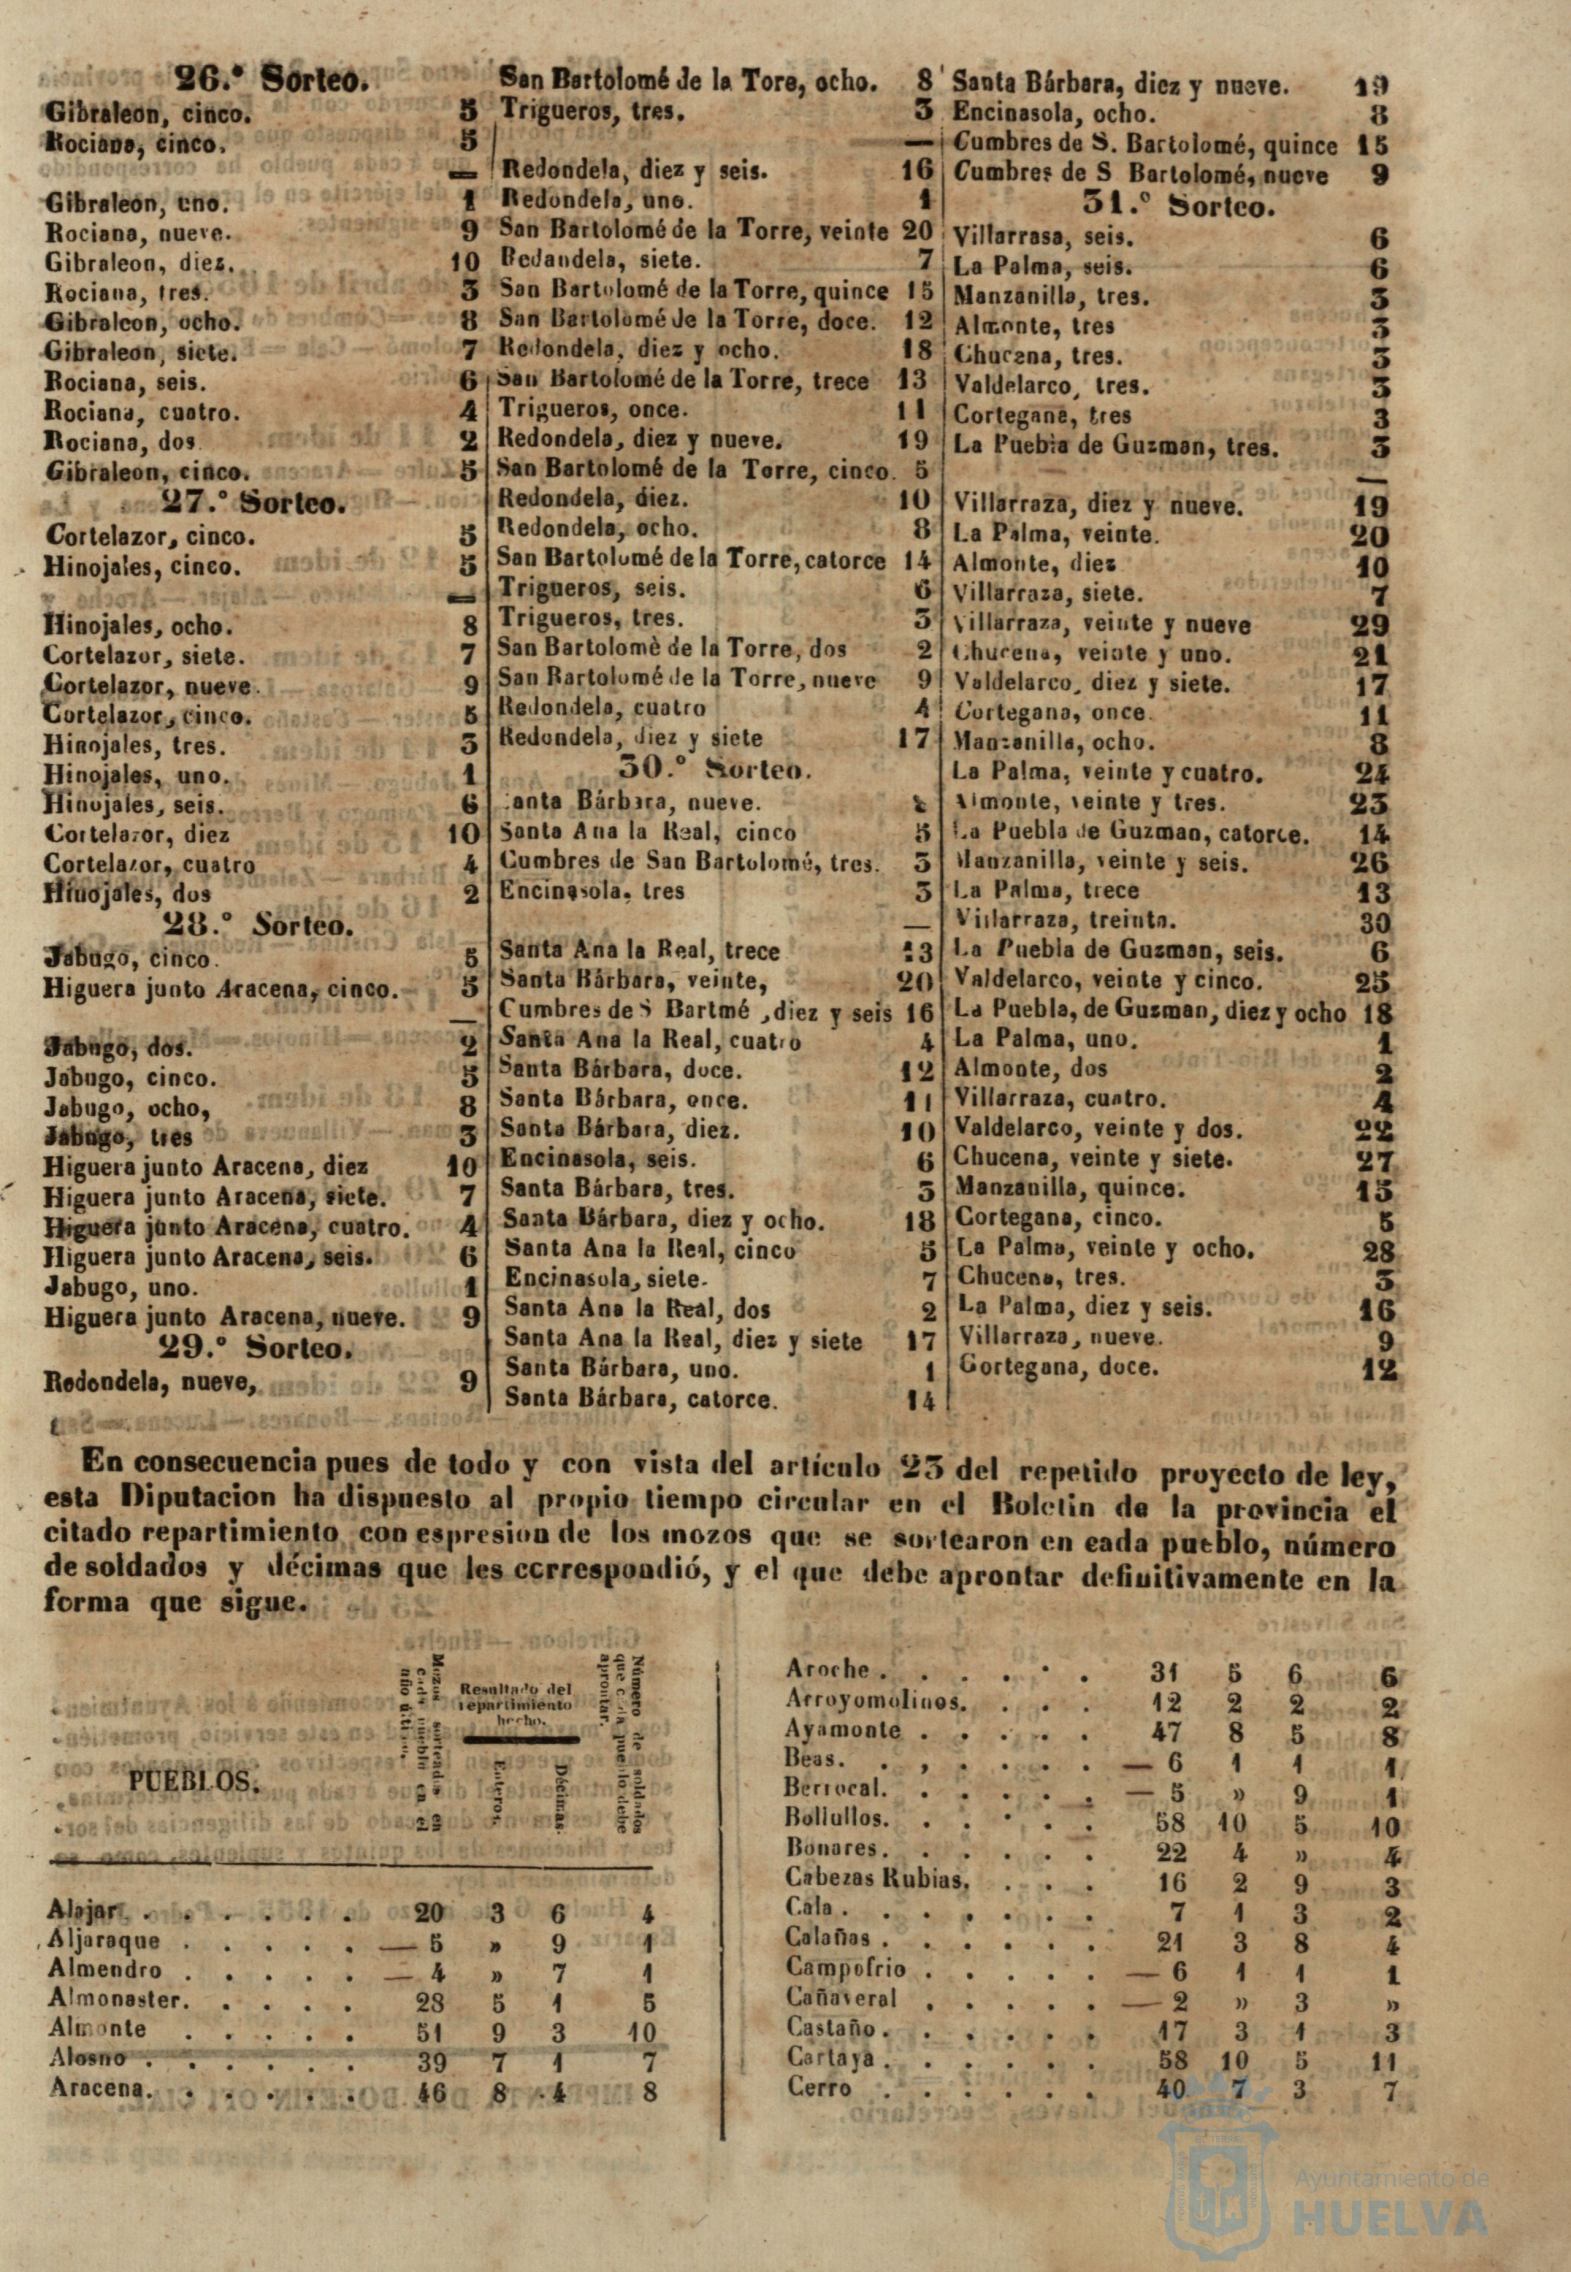 26.º Sorteo.
Gibraleon, cinco. 5
Rociana, cinco. 5
—
Gibraleon, uno. 1
Rociana, nueve. 9
Gibraleon, diez. 10
Rociana, tres. 3
Gibraleon, ocho. 8
Gibraleon, siete. 7
Rociana, seis. 6
Rociana, cuatro. 4
Rociana, dos 2
Gibraleon, cinco. 5
27.º Sorteo.
Cortelazor, cinco. 5
Hinojales, cinco. 5
—
Hinojales, ocho. 8
Cortelazor, siete. 7
Cortelazor, nueve. 9
Cortelazor, cinco. 5
Hinojales, tres. 3
Hinojales, uno. 1
Hinojales, seis. 6
Cortelazor, diez 10
Cortelazor, cuatro 4
Hinojales, dos 2
28.º Sorteo.
Jabugo, cinco. 5
Higuera junto Aracena, cinco. 5
—
Jabugo, dos. 2
Jabugo, cinco. 5
Jabugo, ocho, 8
Jabugo, tres 3
Higuera junto Aracena, diez 10
Higuera junto Aracena, siete. 7
Higuera junto Aracena, cuatro. 4
Higuera junto Aracena, seis. 6
Jabugo, uno. 1
Higuera junto Aracena, nueve. 9
29.º Sorteo.
Redondela, nueve, 9
San Bartolomé de la Tore, ocho. 8
Trigueros, tres. 3
—
Redondela, diez y seis. 16
Redondela, uno. 1
San Bartolomé de la Torre, veinte 20
Redandela, siete. 7
San Bartolomé de la Torre, quince 15
San Bartolomé de la Torre, doce. 12
Redondela, diez y ocho. 18
San Bartolomé de la Torre, trece 13
Trigueros, once. 11
Redondela, diez y nueve. 19
San Bartolomé de la Torre, cinco. 5
Redondela, diez. 10
Redondela, ocho. 8
San Bartolomé de la Torre, catorce 14
Trigueros, seis. 6
Trigueros, tres. 3
San Bartolomè de la Torre, dos 2
San Bartolomé de la Torre, nueve 9
Redondela, cuatro 4
Redondela, diez y siete 17
30.º Sorteo.
Santa Bárbara, nueve.
Santa Ana la Real, cinco 5
Cumbres de San Bartolomé, tres. 3
Encinasola, tres 3
—
Santa Ana la Real, trece 13
Santa Bárbara, veinte, 20
Cumbres de S Bartmé, diez y seis 16
Santa Ana la Real, cuatro 4
Santa Bárbara, doce. 12
Santa Bárbara, once. 11
Santa Bárbara, diez. 10
Encinasola, seis. 6
Santa Bárbara, tres. 3
Santa Bárbara, diez y ocho. 18
Santa Ana la Real, cinco 5
Encinasola, siete. 7
Santa Ana la Real, dos 2
Santa Ana la Real, diez y siete 17
Santa Bárbara, uno. 1
Santa Bárbara, catorce. 14
Santa Bárbara, diez y nueve. 19
Encinasola, ocho. 8
Cumbres de S. Bartolomé, quince 15
Cumbres de S Bartolomé, nueve 9
31.º Sorteo.
Villarrasa, seis. 6
La Palma, seis. 6
Manzanilla, tres. 3
Almonte, tres 3
Chucena, tres. 3
Valdelarco, tres. 3
Cortegana, tres 3
La Puebla de Guzman, tres. 3
—
Villarraza, diez y nueve. 19
La Palma, veinte. 20
Almonte, diez 10
Villarraza, siete. 7
Villarraza, veinte y nueve 29
Chucena, veinte y uno. 21
Valdelarco, diez y siete. 17
Cortegana, once. 11
Manzanilla, ocho. 8
La Palma, veinte y cuatro. 24
Almonte, veinte y tres. 23
La Puebla de Guzman, catorce. 14
Manzanilla, veinte y seis. 26
La Palma, trece 13
Villarraza, treinta. 30
La Puebla de Guzman, seis. 6
Valdelarco, veinte y cinco. 25
La Puebla, de Guzman, diez y ocho 18
La Palma, uno. 1
Almonte, dos 2
Villarraza, cuatro. 4
Valdelarco, veinte y dos. 22
Chucena, veinte y siete. 27
Manzanilla, quince. 15
Cortegana, cinco. 5
La Palma, veinte y ocho. 28
Chucena, tres. 3
La Palma, diez y seis. 16
Villarraza, nueve. 9
Cortegana, doce. 12
En consecuencia pues de todo y con vista del artículo 23 del repetido proyecto de ley,
esta Diputacion ha dispuesto al propio tiempo circular en el Boletin de la provincia el
citado repartimiento con espresion de los mozos que se sortearon en cada pueblo, número
de soldados y décimas que les correspondió, y el que debe aprontar definitivamente en la
forma que sigue.
PUEBLOS.
Mozos sorteados en
cada pueblo en el
año último.
Resultado del
repartimiento
hecho.
Enteros.
Décimas.
Número de soldados
que cada pueblo debe
aprontar.
Alajar . . . . . . . 20 3 6 4
Aljaraque . . . . . — 5 » 9 1
Almendro . . . . . — 4 » 7 1
Almonaster. . . . . . 28 5 1 5
Almonte . . . . . 51 9 3 10
Alosno . . . . . . 39 7 1 7
Aracena. . . . . . 46 8 4 8
Aroche . . . . . . 31 5 6 6
Arroyomolinos. . . . 12 2 2 2
Ayamonte . . . . . 47 8 5 8
Beas. . , . . . . — 6 1 1 1
Berrocal. . . . . . — 5 » 9 1
Bollullos. . . . . . 58 10 5 10
Bonares. . . . . . 22 4 » 4
Cabezas Rubias. . . . 16 2 9 3
Cala . . . . . . . 7 1 3 2
Calañas . . . . . . 21 3 8 4
Campofrio . . . . . — 6 1 1 1
Cañaveral . . . . . — 2 » 3 »
Castaño . . . . . . 17 3 1 3
Cartaya . . . . . . 58 10 5 11
Cerro . . . . . . 40 7 3 7
Ayuntamiento de
HUELVA